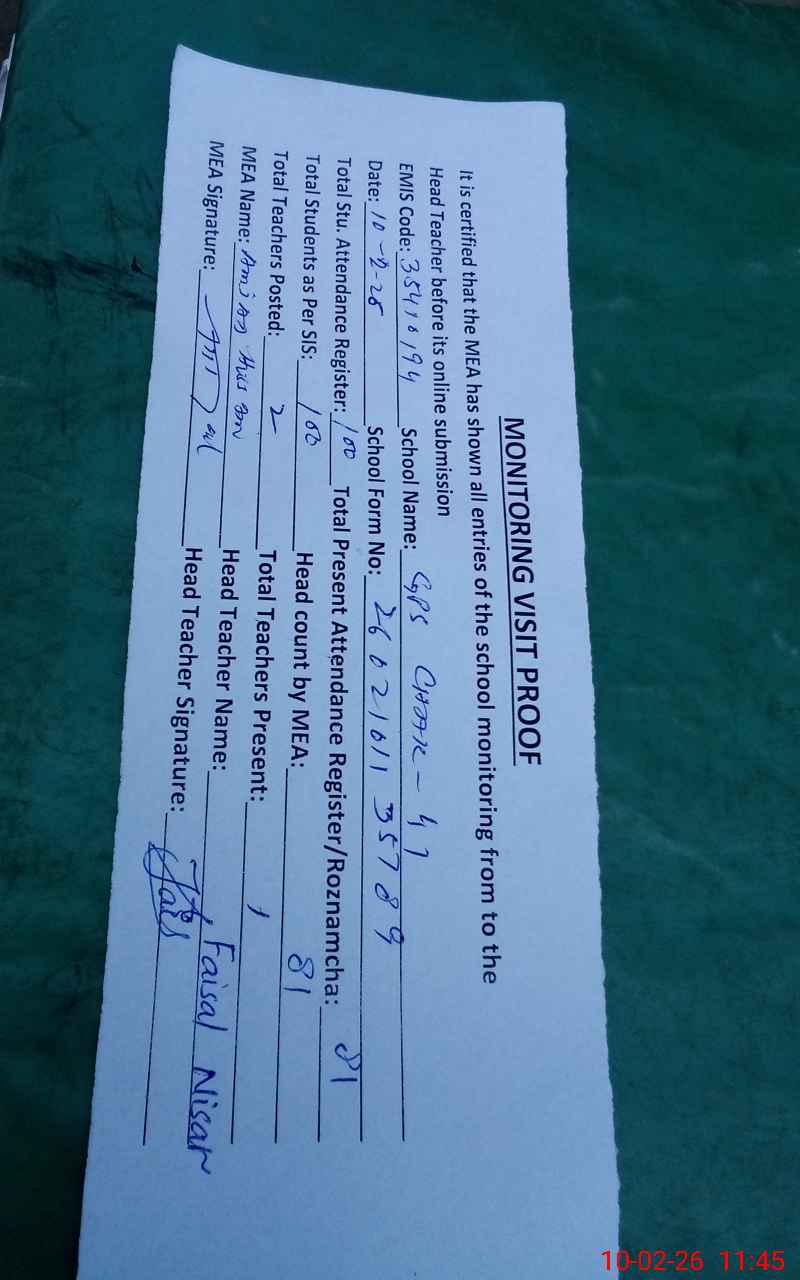 MONITORING VISIT PROOF
It is certified that the MEA has shown all entries of the school monitoring from to the
Head Teacher before its online submission
EMIS Code: 35410194 School Name: GPS CHAK - 41
Date: 10-2-26 School Form No: 2602161135789
Total Stu. Attendance Register: 100 Total Present Attendance Register/Roznamcha: 81
Total Students as Per SIS: 100 Head count by MEA: 81
Total Teachers Posted: 2 Total Teachers Present: 1
MEA Name: Head Teacher Name: Faisal Nisar
MEA Signature: Head Teacher Signature:
10-02-26 11:45